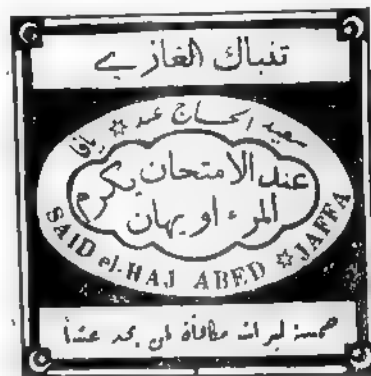 تنباك الغازي
سعيد الحاج عبد ☆ يافا
عند الامتحان يكرم
المرء او يهان
SAID el-HAJ ABED ☆ JAFFA
خمسة ليرات مكافأة لمن يجد غشاً